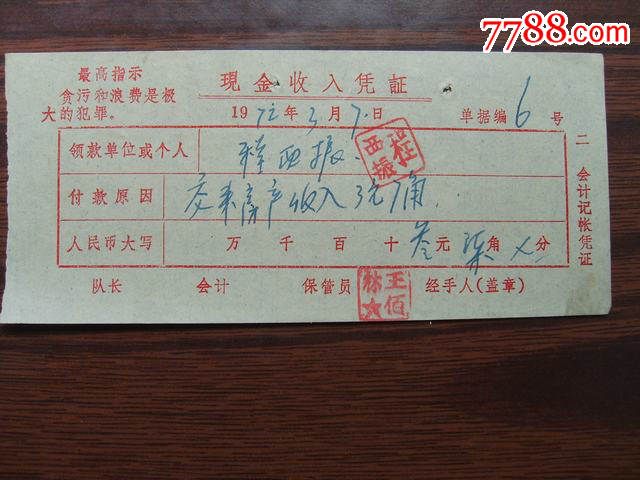 7788.com
中国收藏热线
最高指示
贪污和浪费是极
大的犯罪。
現金收入凭証
1972年3月7日
单据编6号
领款单位或个人 程西振
程西振
付款原因 交来房产收入3元7角
人民币大写 万千百十叁元柒角 ㄨ分
二 会计记帐凭证
队长 会计 保管员 经手人(盖章)
王佰林